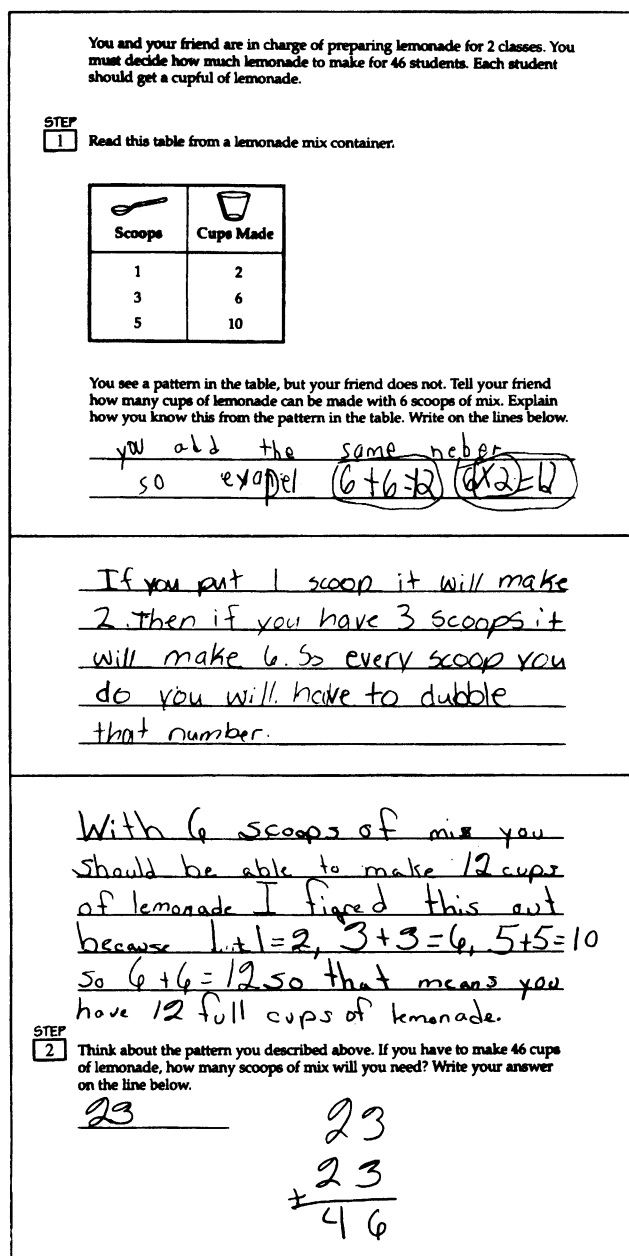 You and your friend are in charge of preparing lemonade for 2 classes. You
must decide how much lemonade to make for 46 students. Each student
should get a cupful of lemonade.
STEP
1 Read this table from a lemonade mix container.
Scoops Cups Made
1 2
3 6
5 10
You see a pattern in the table, but your friend does not. Tell your friend
how many cups of lemonade can be made with 6 scoops of mix. Explain
how you know this from the pattern in the table. Write on the lines below.
you add the same neber
so exapel 6+6=12 6x2=12
If you put 1 scoop it will make
2. Then if you have 3 scoops it
will make 6. So every scoop you
do you will have to dubble
that number.
With 6 scoops of mix you
should be able to make 12 cups
of lemonade I figred this out
because 1+1=2, 3+3=6, 5+5=10
so 6+6=12 so that means you
have 12 full cups of lemonade.
STEP
2 Think about the pattern you described above. If you have to make 46 cups
of lemonade, how many scoops of mix will you need? Write your answer
on the line below.
23
23
23
+
46